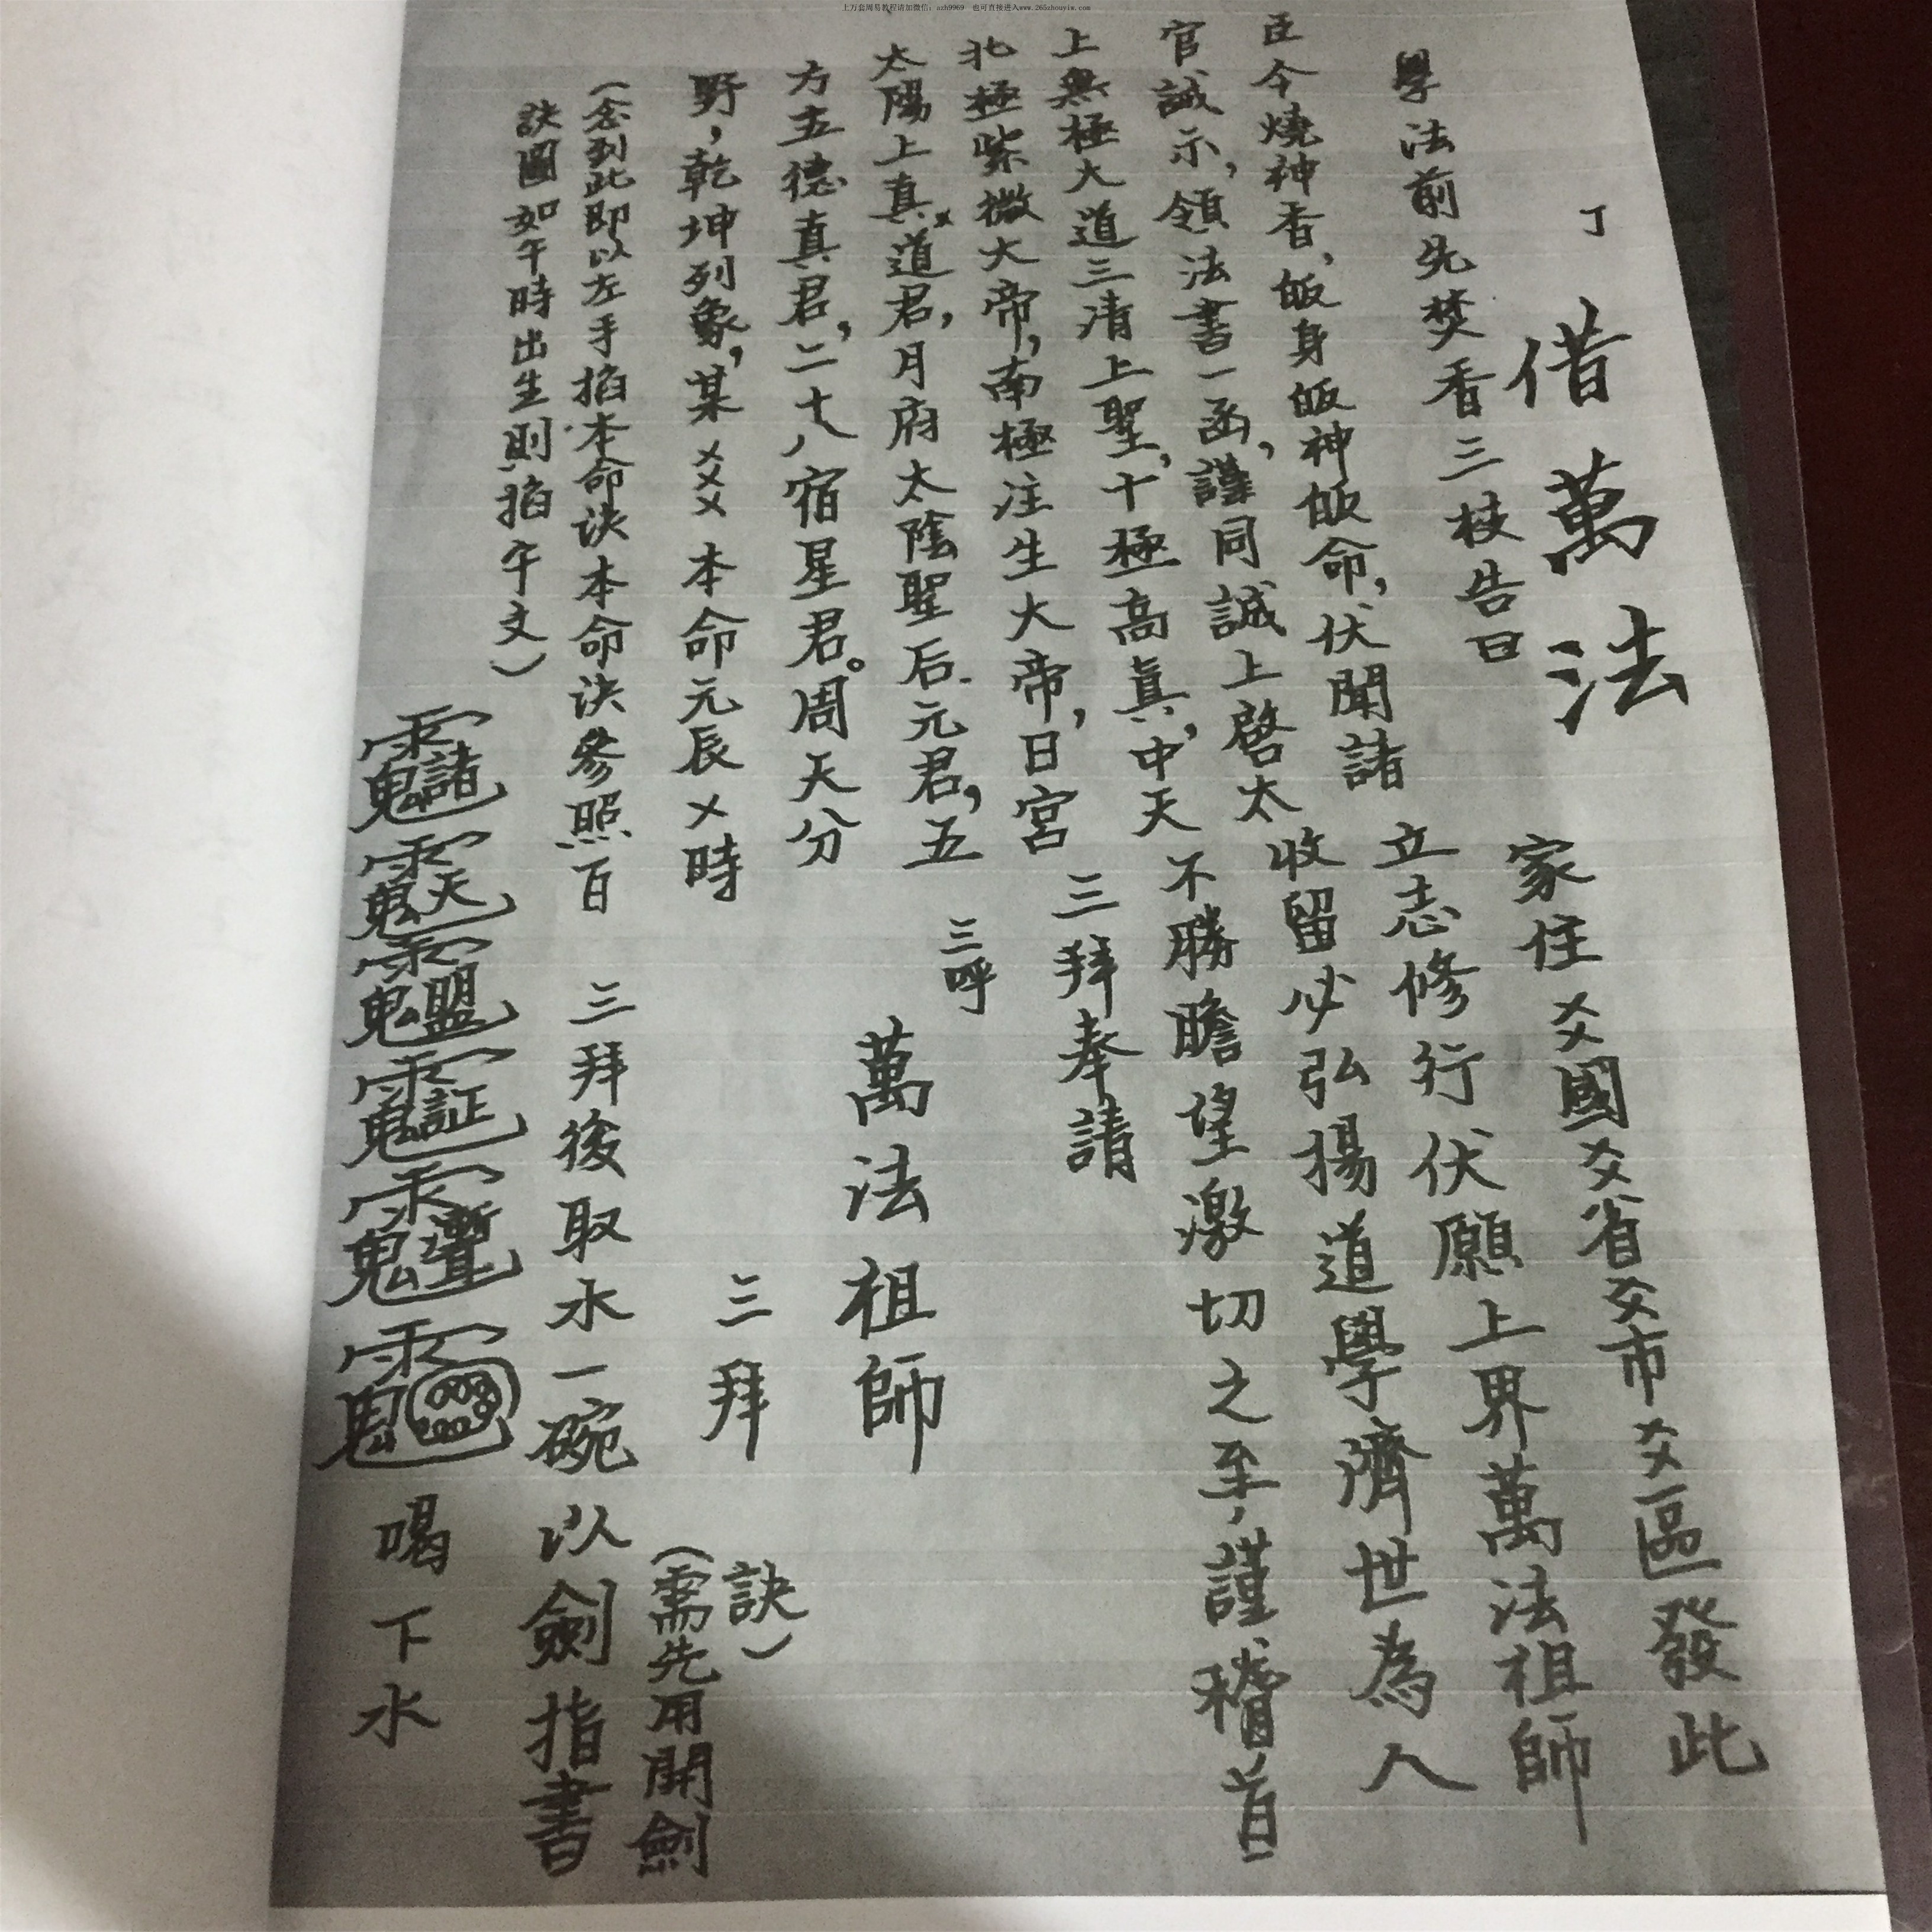 上万套周易教程请加微信：szh9969 也可直接进入www.265zhouyiw.com
丁
借萬法
學法前先焚香三枝告曰
臣今燒神香，皈身皈神皈命，伏聞諸
官誠示，領法書一函，謹同誠上啓太
上無極大道三清上聖，十極高真，中天
北極紫微大帝，南極注生大帝，日宮
太陽上真道君，月府太陰聖后元君，五
方五德真君，二十八宿星君。周天分
野，乾坤列象，某乂乂乂本命元辰乂時
（念到此即以左手掐本命诀本命诀參照百
訣圖如午時出生則掐午文）
家住乂乂國乂乂省乂乂市乂乂區發此
立志修行伏願上界萬法祖師
收留必弘揚道學濟世為人
不勝瞻望激切之至，謹稽首
三拜奉請
三呼
萬法祖師
三拜
（需先用開劍
訣）
三拜後取水一碗以劍指書
喝下水